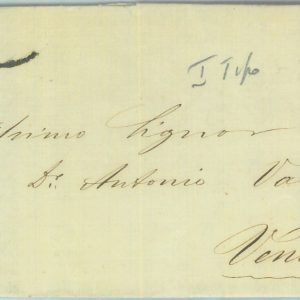 I Tipo
ssimo Signor
Dr. Antonio Va
Ven